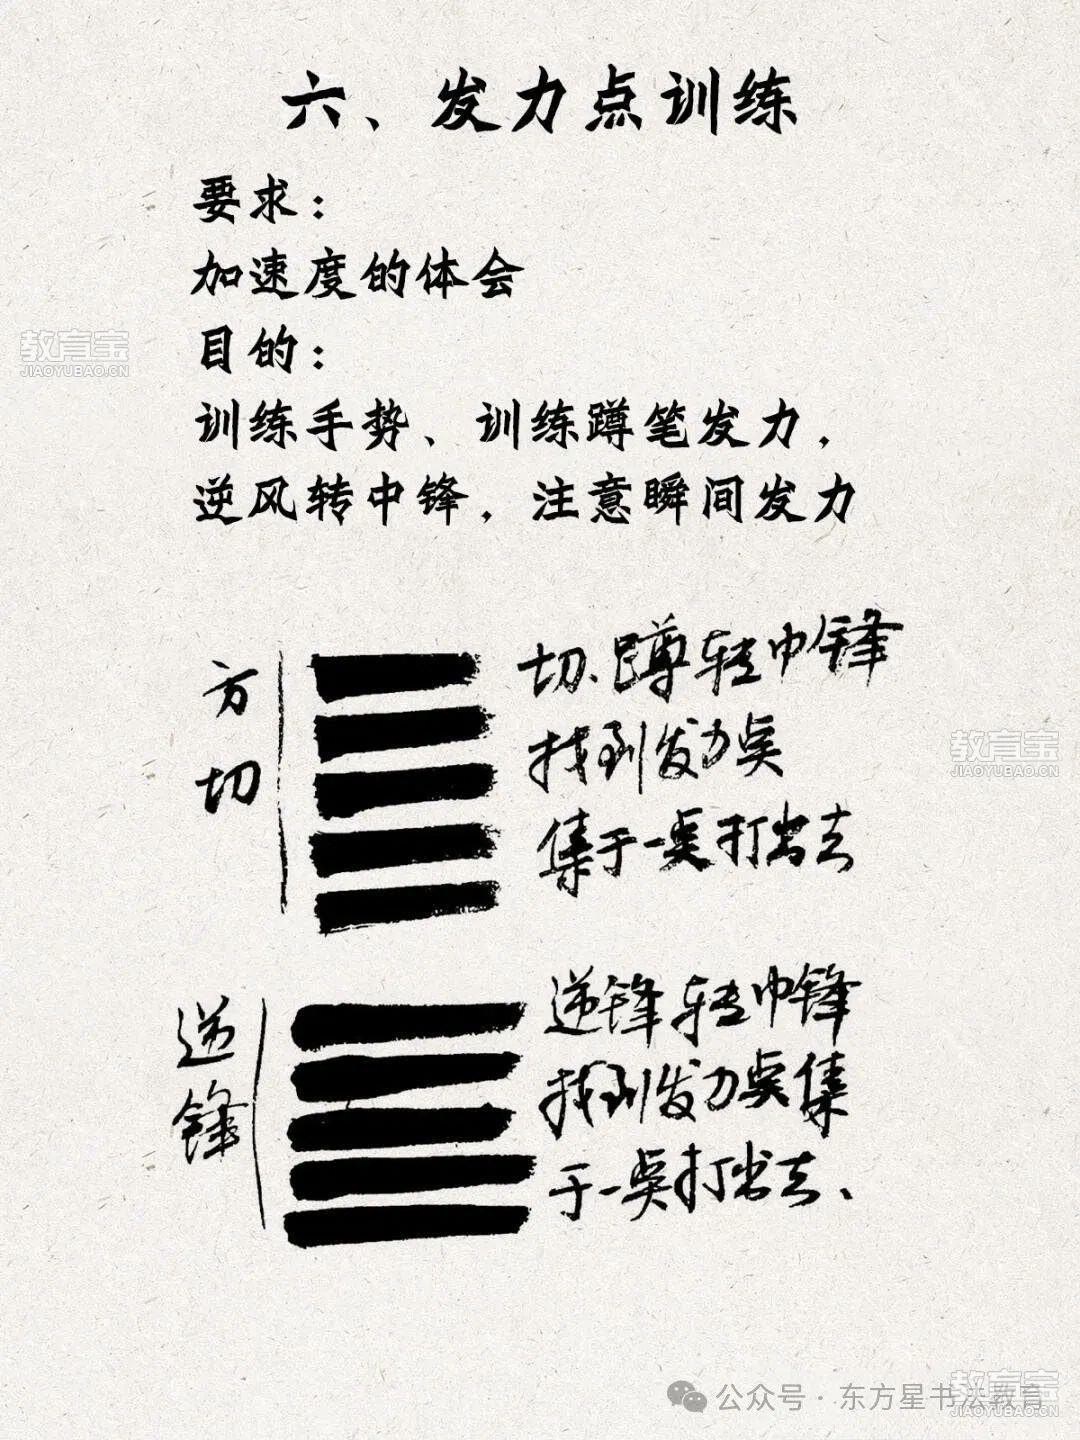 六、发力点训练
要求：
加速度的体会
目的：
训练手势、训练蹲笔发力，
逆风转中锋，注意瞬间发力
教育宝
JIAOYUBAO.CN
方切
切、蹲转中锋
找到发力点
集于一点打出去
教育宝
JIAOYUBAO.CN
逆锋
逆锋转中锋
找到发力点集
于一点打出去、
教育宝
JIAOYUBAO.CN
公众号·东方星书法教育